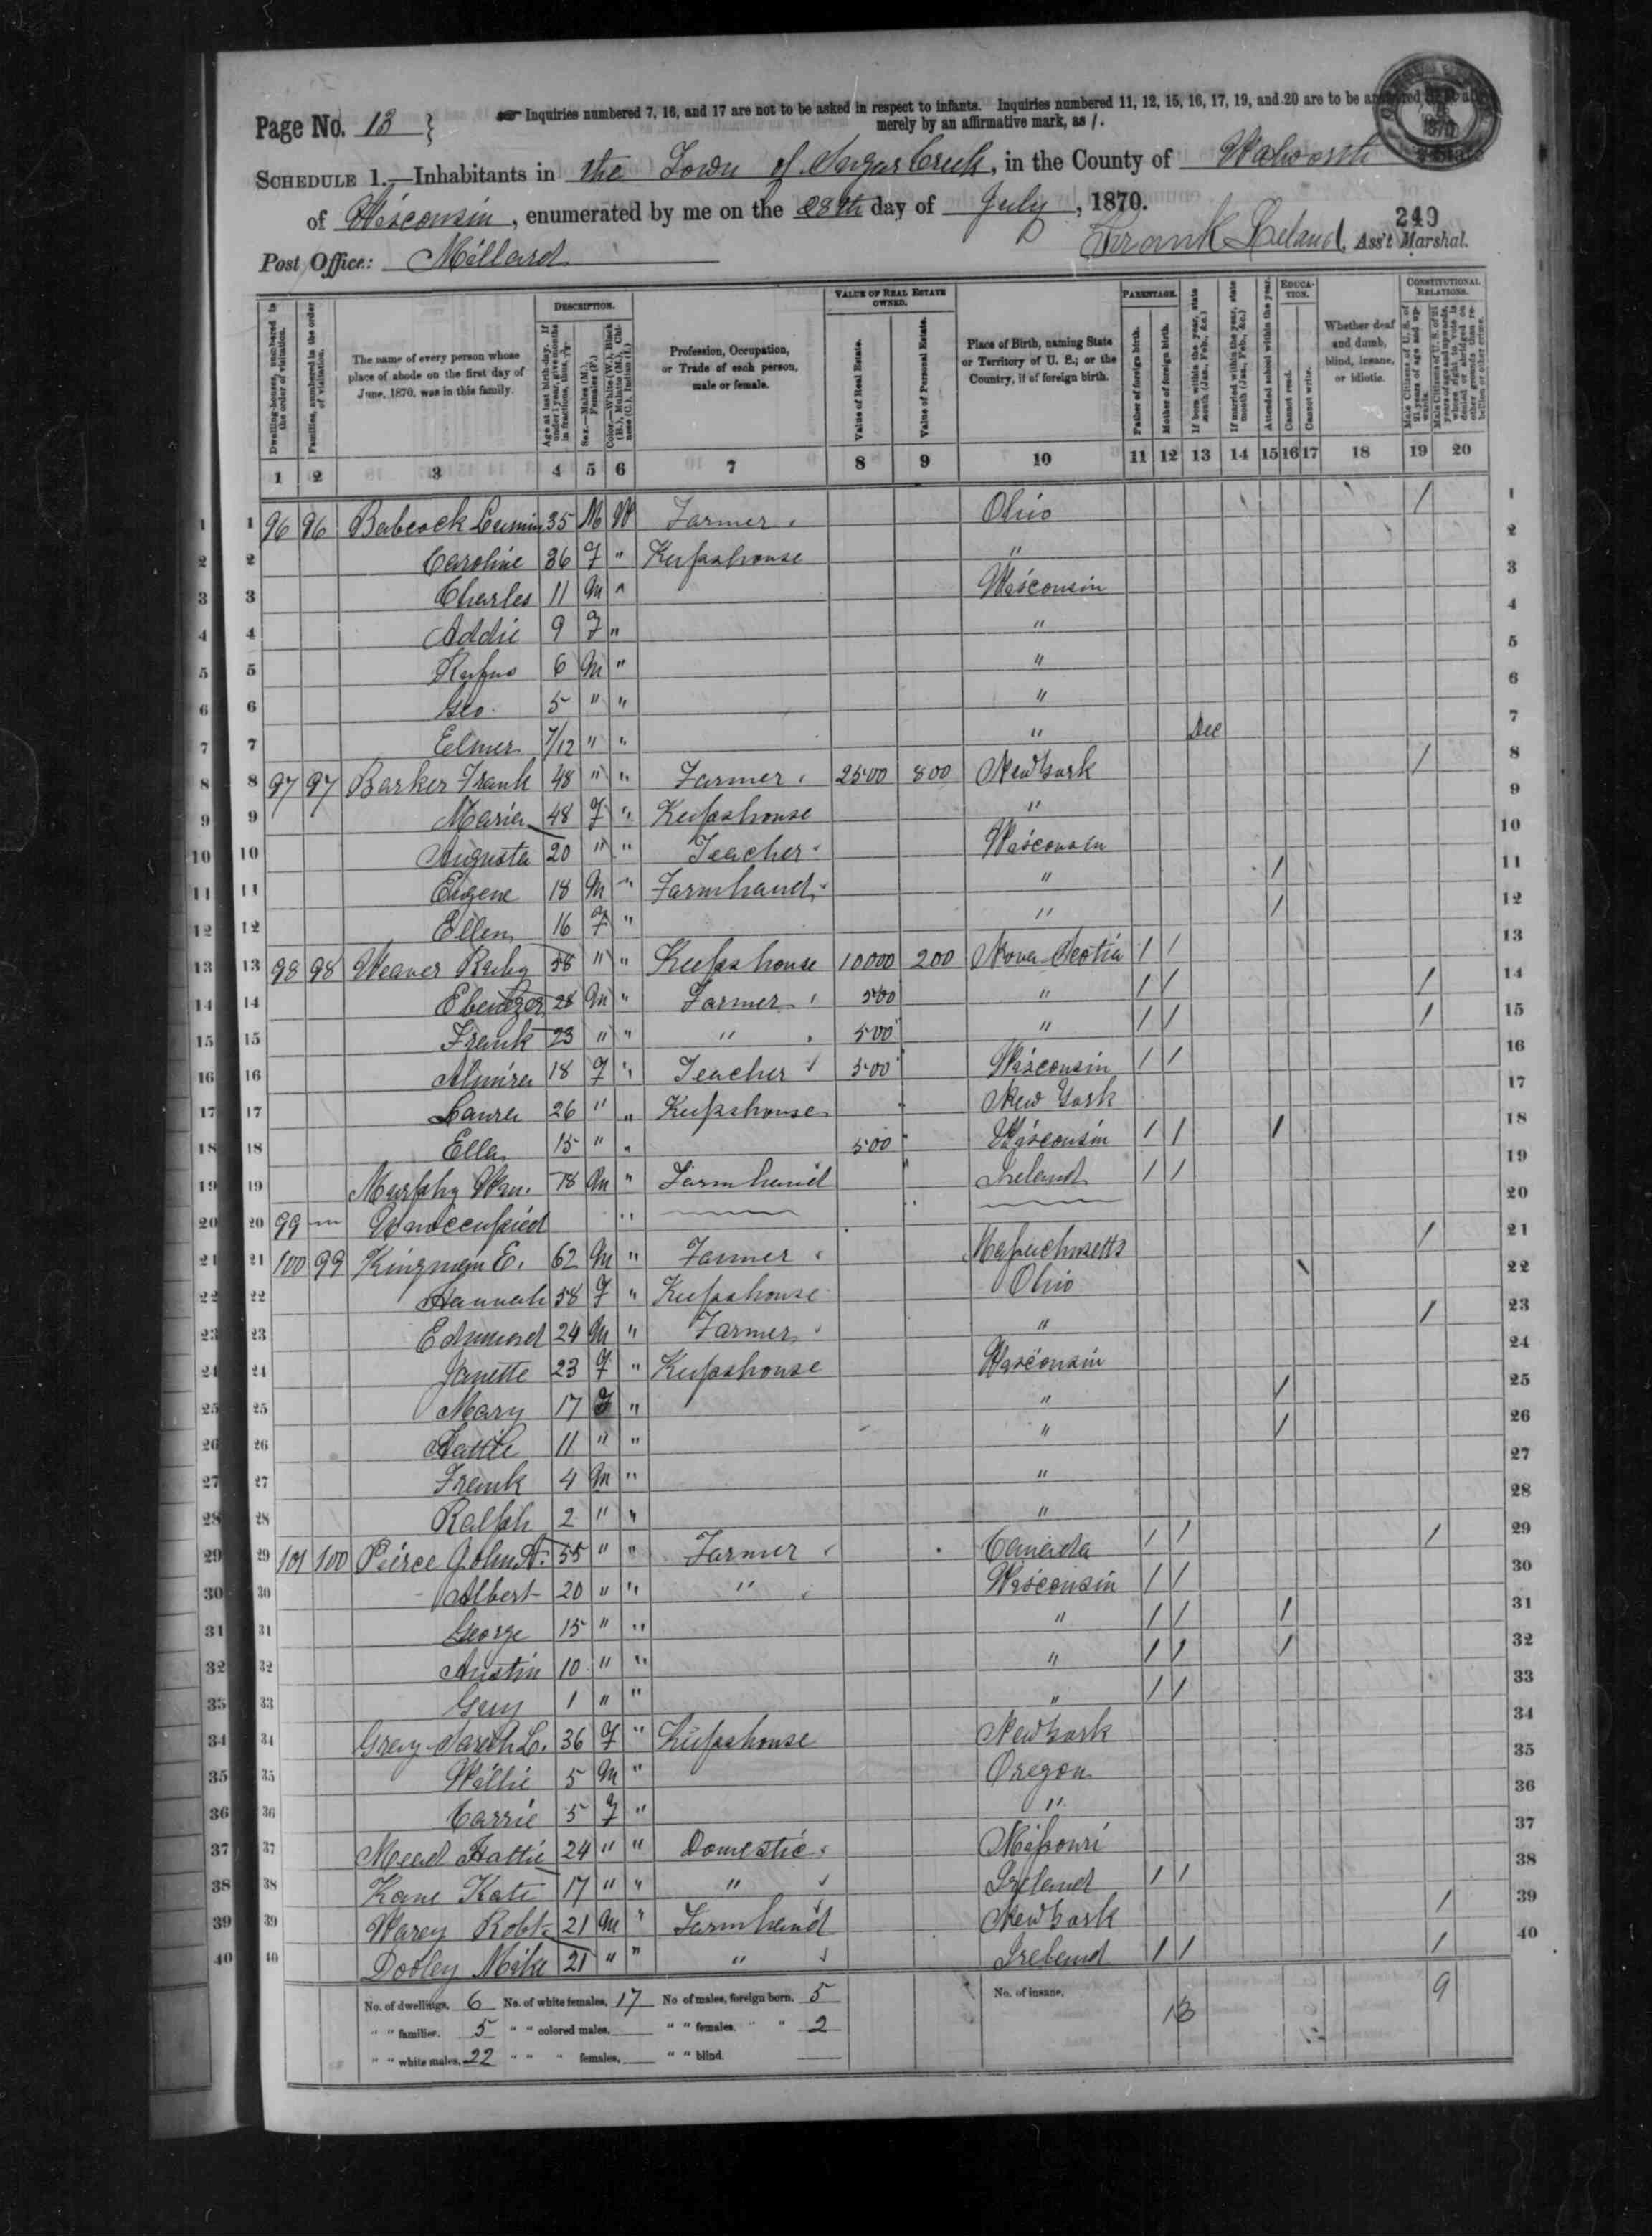 Page No. 13 } Inquiries numbered 7, 16, and 17 are not to be asked in respect to infants. Inquiries numbered 11, 12, 15, 16, 17, 19, and 20 are to be answered
merely by an affirmative mark, as /.
SCHEDULE 1.—Inhabitants in the Town of Sugar Creek, in the County of Walworth, State
of Wisconsin, enumerated by me on the 28th day of July, 1870.
249
Post Office: Millard Frank Leland, Ass't Marshal.
Dwelling-houses, numbered in the order of visitation.
Families, numbered in the order of visitation.
The name of every person whose place of abode on the first day of June, 1870, was in this family.
DESCRIPTION.
Age at last birth-day. If under 1 year, give months in fractions, thus, 3/12.
Sex.—Males (M.), Females (F.)
Color.—White (W.), Black (B.), Mulatto (M.), Chinese (C.), Indian (I.)
Profession, Occupation, or Trade of each person, male or female.
VALUE OF REAL ESTATE OWNED.
Value of Real Estate.
Value of Personal Estate.
Place of Birth, naming State or Territory of U. S.; or the Country, if of foreign birth.
PARENTAGE.
Father of foreign birth.
Mother of foreign birth.
If born within the year, state month (Jan., Feb., &c.)
If married within the year, state month (Jan., Feb., &c.)
Attended school within the year.
EDUCATION.
Cannot read.
Cannot write.
Whether deaf and dumb, blind, insane, or idiotic.
CONSTITUTIONAL RELATIONS.
Male Citizens of U. S. of 21 years of age and upwards.
Male Citizens of U. S. of 21 years of age and upwards, whose right to vote is denied or abridged on other grounds than rebellion or other crime.
1 2 3 4 5 6 7 8 9 10 11 12 13 14 15 16 17 18 19 20
1 1 96 96 Babcock 35 M W Farmer Ohio / 1
2 2 Caroline 36 F " Keepshouse " 2
3 3 Charles 11 M " Wisconsin 3
4 4 Addie 9 F " " 4
5 5 Rufus 6 M " " 5
6 6 Geo. 5 " " " 6
7 7 Elmer 7/12 " " " Dec 7
8 8 97 97 Barker Frank 48 " " Farmer 2500 800 New York / 8
9 9 Maria 48 F " Keepshouse " 9
10 10 Augusta 20 " " Teacher Wisconsin 10
11 11 Eugene 18 M " Farmhand " / 11
12 12 Ellen 16 F " " / 12
13 13 98 98 Weaver Ruby 58 " " Keepshouse 10000 200 Nova Scotia / / 13
14 14 Ebenezer 28 M " Farmer 500 " / / / 14
15 15 Frank 23 " " " 500 " / / / 15
16 16 Almira 18 F " Teacher 500 Wisconsin / / 16
17 17 Laura 26 " " Keepshouse New York 17
18 18 Ella 15 " " 500 Wisconsin / / / 18
19 19 Murphy Wm. 18 M " Farmhand Ireland / / 19
20 20 99 Unoccupied " 20
21 21 100 99 Kingman E. 62 M " Farmer Massachusetts / 21
22 22 Hannah 58 F " Keepshouse Ohio / 22
23 23 Edmund 24 M " Farmer " / 23
24 24 Janette 23 F " Keepshouse Wisconsin 24
25 25 Mary 17 F " " / 25
26 26 Hattie 11 " " " / 26
27 27 Frank 4 M " " 27
28 28 Ralph 2 " " " 28
29 29 101 100 Peirce John A. 55 " " Farmer Canada / / / 29
30 30 Albert 20 " " " Wisconsin / / 30
31 31 George 15 " " " / / / 31
32 32 Austin 10 " " " / / / 32
33 33 Gary 1 " " " / / 33
34 34 Gray Sarah L. 36 F " Keepshouse New York 34
35 35 Willie 5 M " Oregon 35
36 36 Carrie 5 F " " 36
37 37 Mead Hattie 24 " " Domestic Missouri 37
38 38 Kane Kate 17 " " " Ireland / / 38
39 39 Warey Robt. 21 M " Farmhand New York / 39
40 40 Dooley Mike 21 " " " Ireland / / / 40
No. of dwellings, 6 No. of white females, 17 No of males, foreign born, 5 No. of insane, 13 9
" " families, 5 " " colored males, " " females, " " 2
" " white males, 22 " " " females, " " blind.